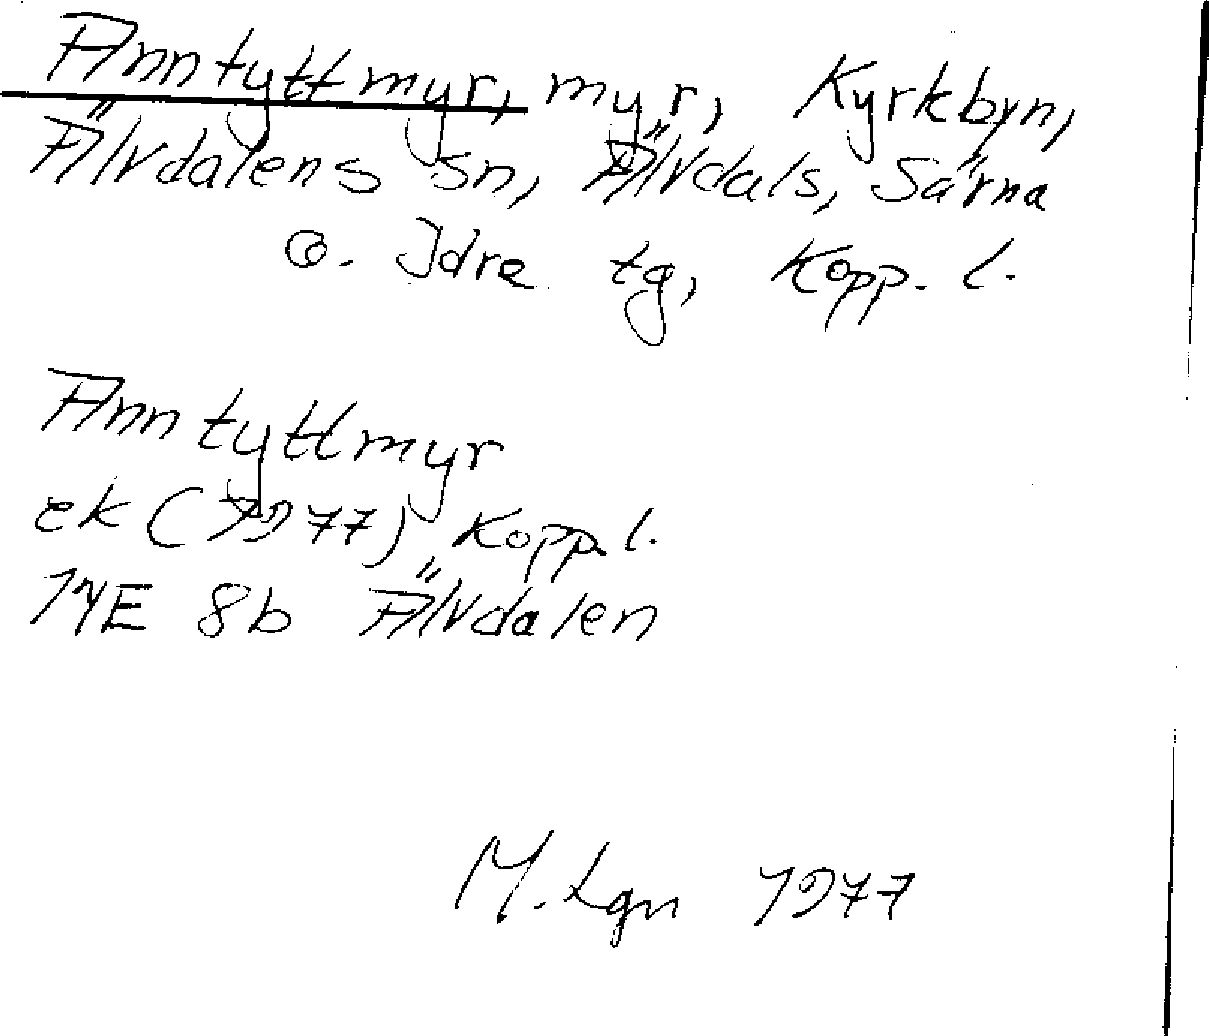 Anntyttmyr, myr, Kyrkbyn,
Älvdalens sn, Älvdals, Särna
o. Idre tg, Kopp. l.
Anntyttmyr
ek (1977) Kopp. l.
14E 8b Älvdalen
M. Lgn 1977